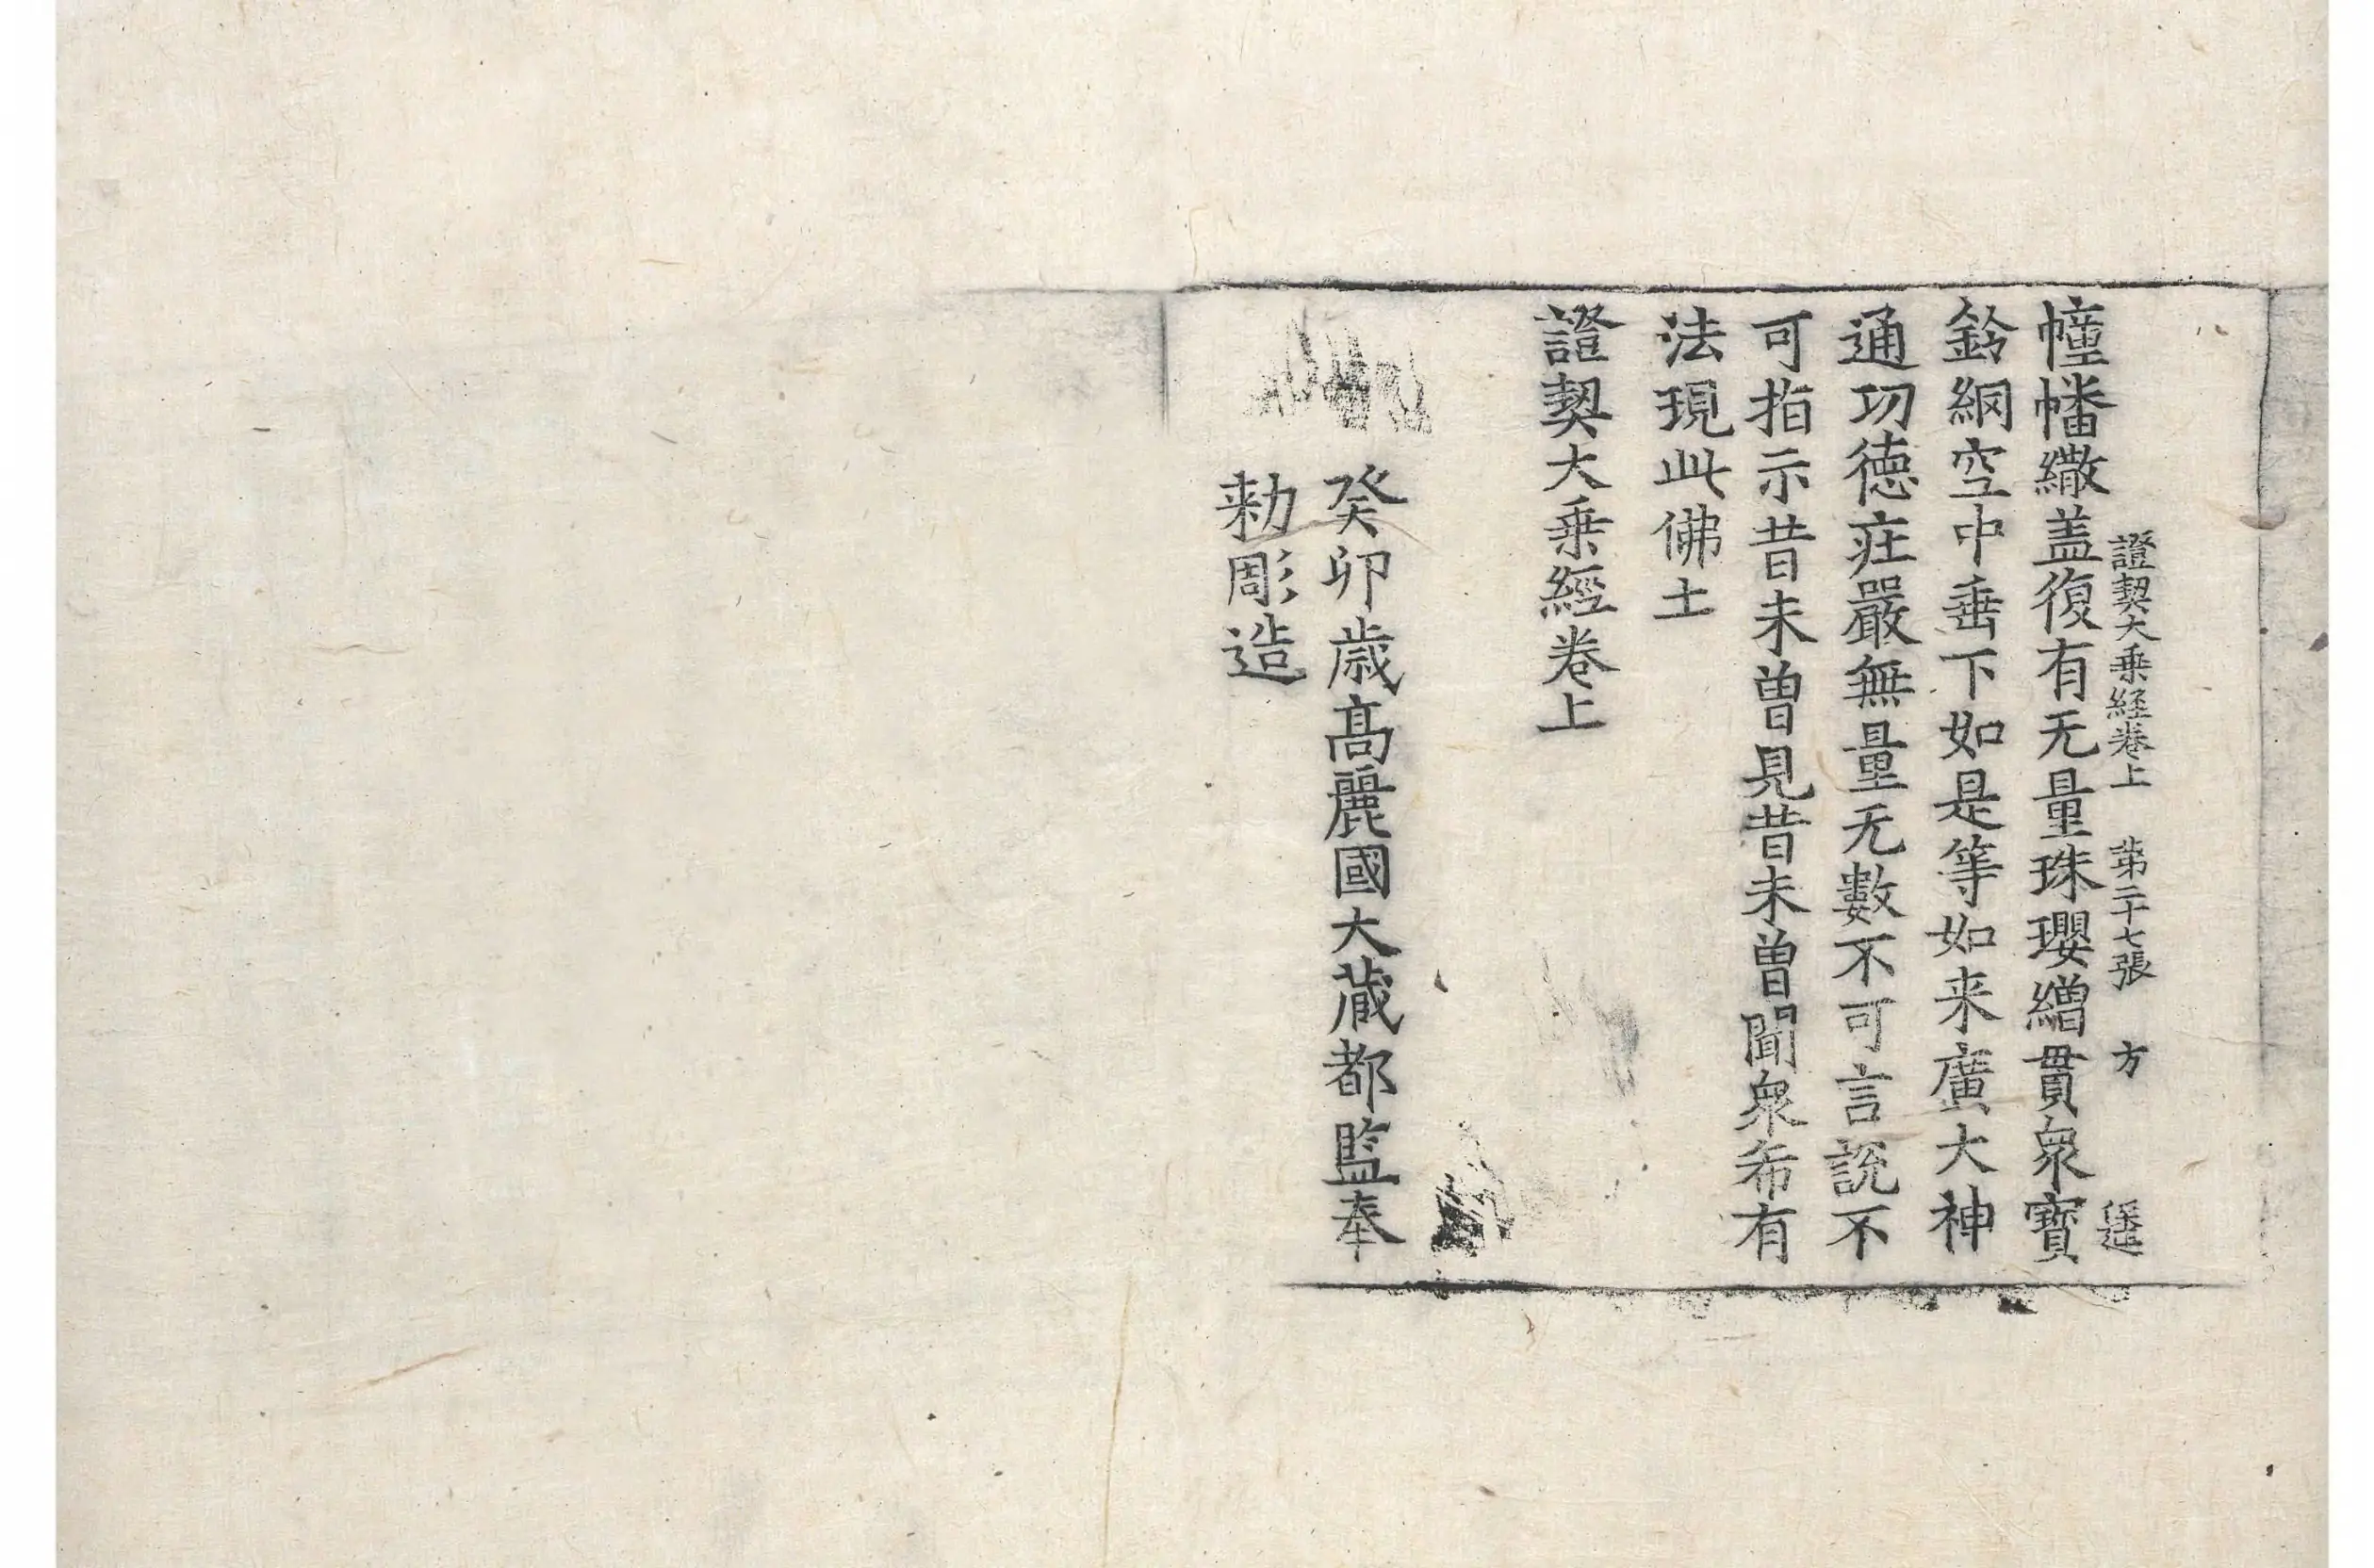 證契大乗經卷上　第二十七張　方
幢幡繖盖復有无量珠瓔繒貫衆寶
鈴網空中垂下如是等如来廣大神
通功德莊嚴無量无數不可言說不
可指示昔未曽見昔未曽聞衆希有
法現此佛土
證契大乗經卷上
癸卯歳髙麗國大藏都監奉
勑彫造